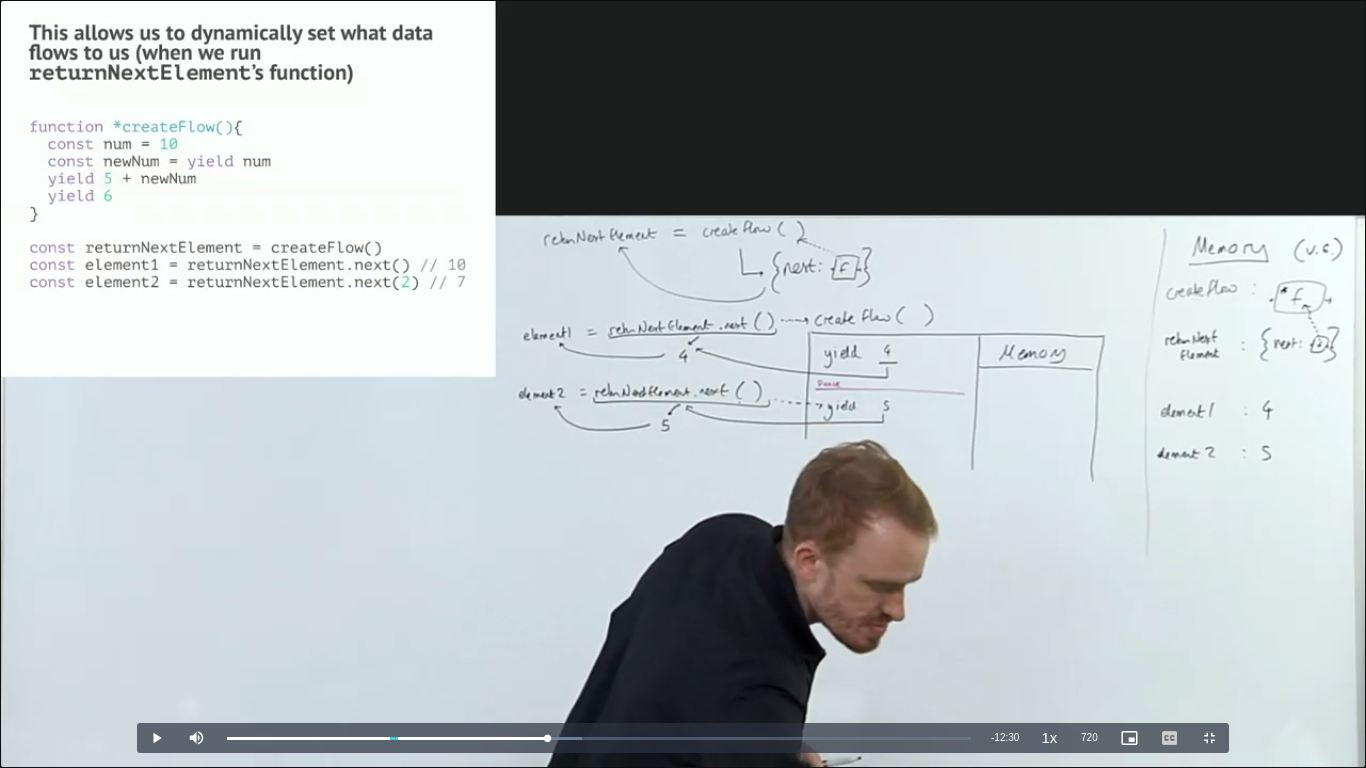 This allows us to dynamically set what data
flows to us (when we run
returnNextElement's function)
function *createFlow(){
const num = 10
const newNum = yield num
yield 5 + newNum
yield 6
}
const returnNextElement = createFlow()
const element1 = returnNextElement.next() // 10
const element2 = returnNextElement.next(2) // 7
returnNextElement = createFlow()
{next: f}
element1 = returnNextElement.next() createFlow()
4
yield 4
Memory
Pause
element2 = returnNextElement.next()
5
yield 5
Memory (v.e.)
createFlow : *f
returnNext
Element : {next: f}
element1 : 4
element2 : 5
-12:30 1x 720 CC